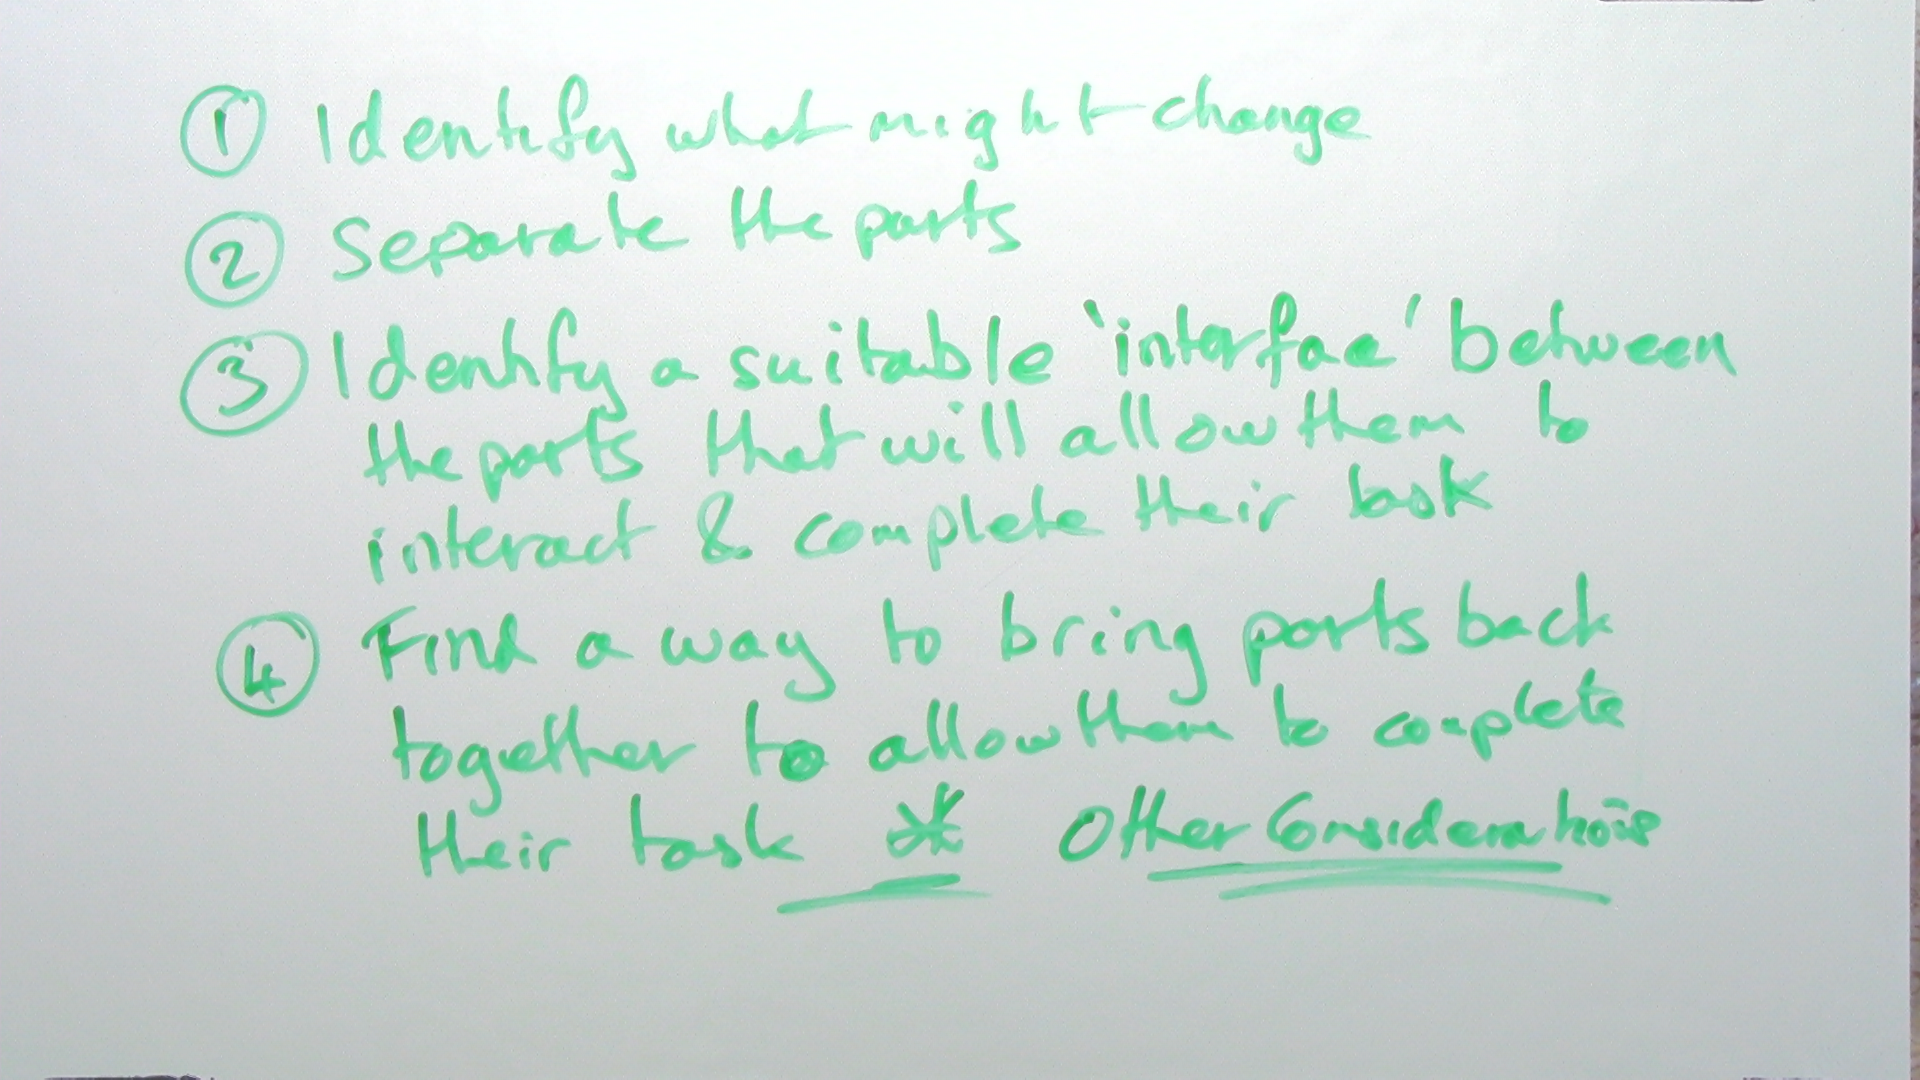 ① Identify what might change
② Separate the parts
③ Identify a suitable 'interface' between
the parts that will allow them to
interact & complete their task
④ Find a way to bring parts back
together to allow them to complete
their task * Other Considerations